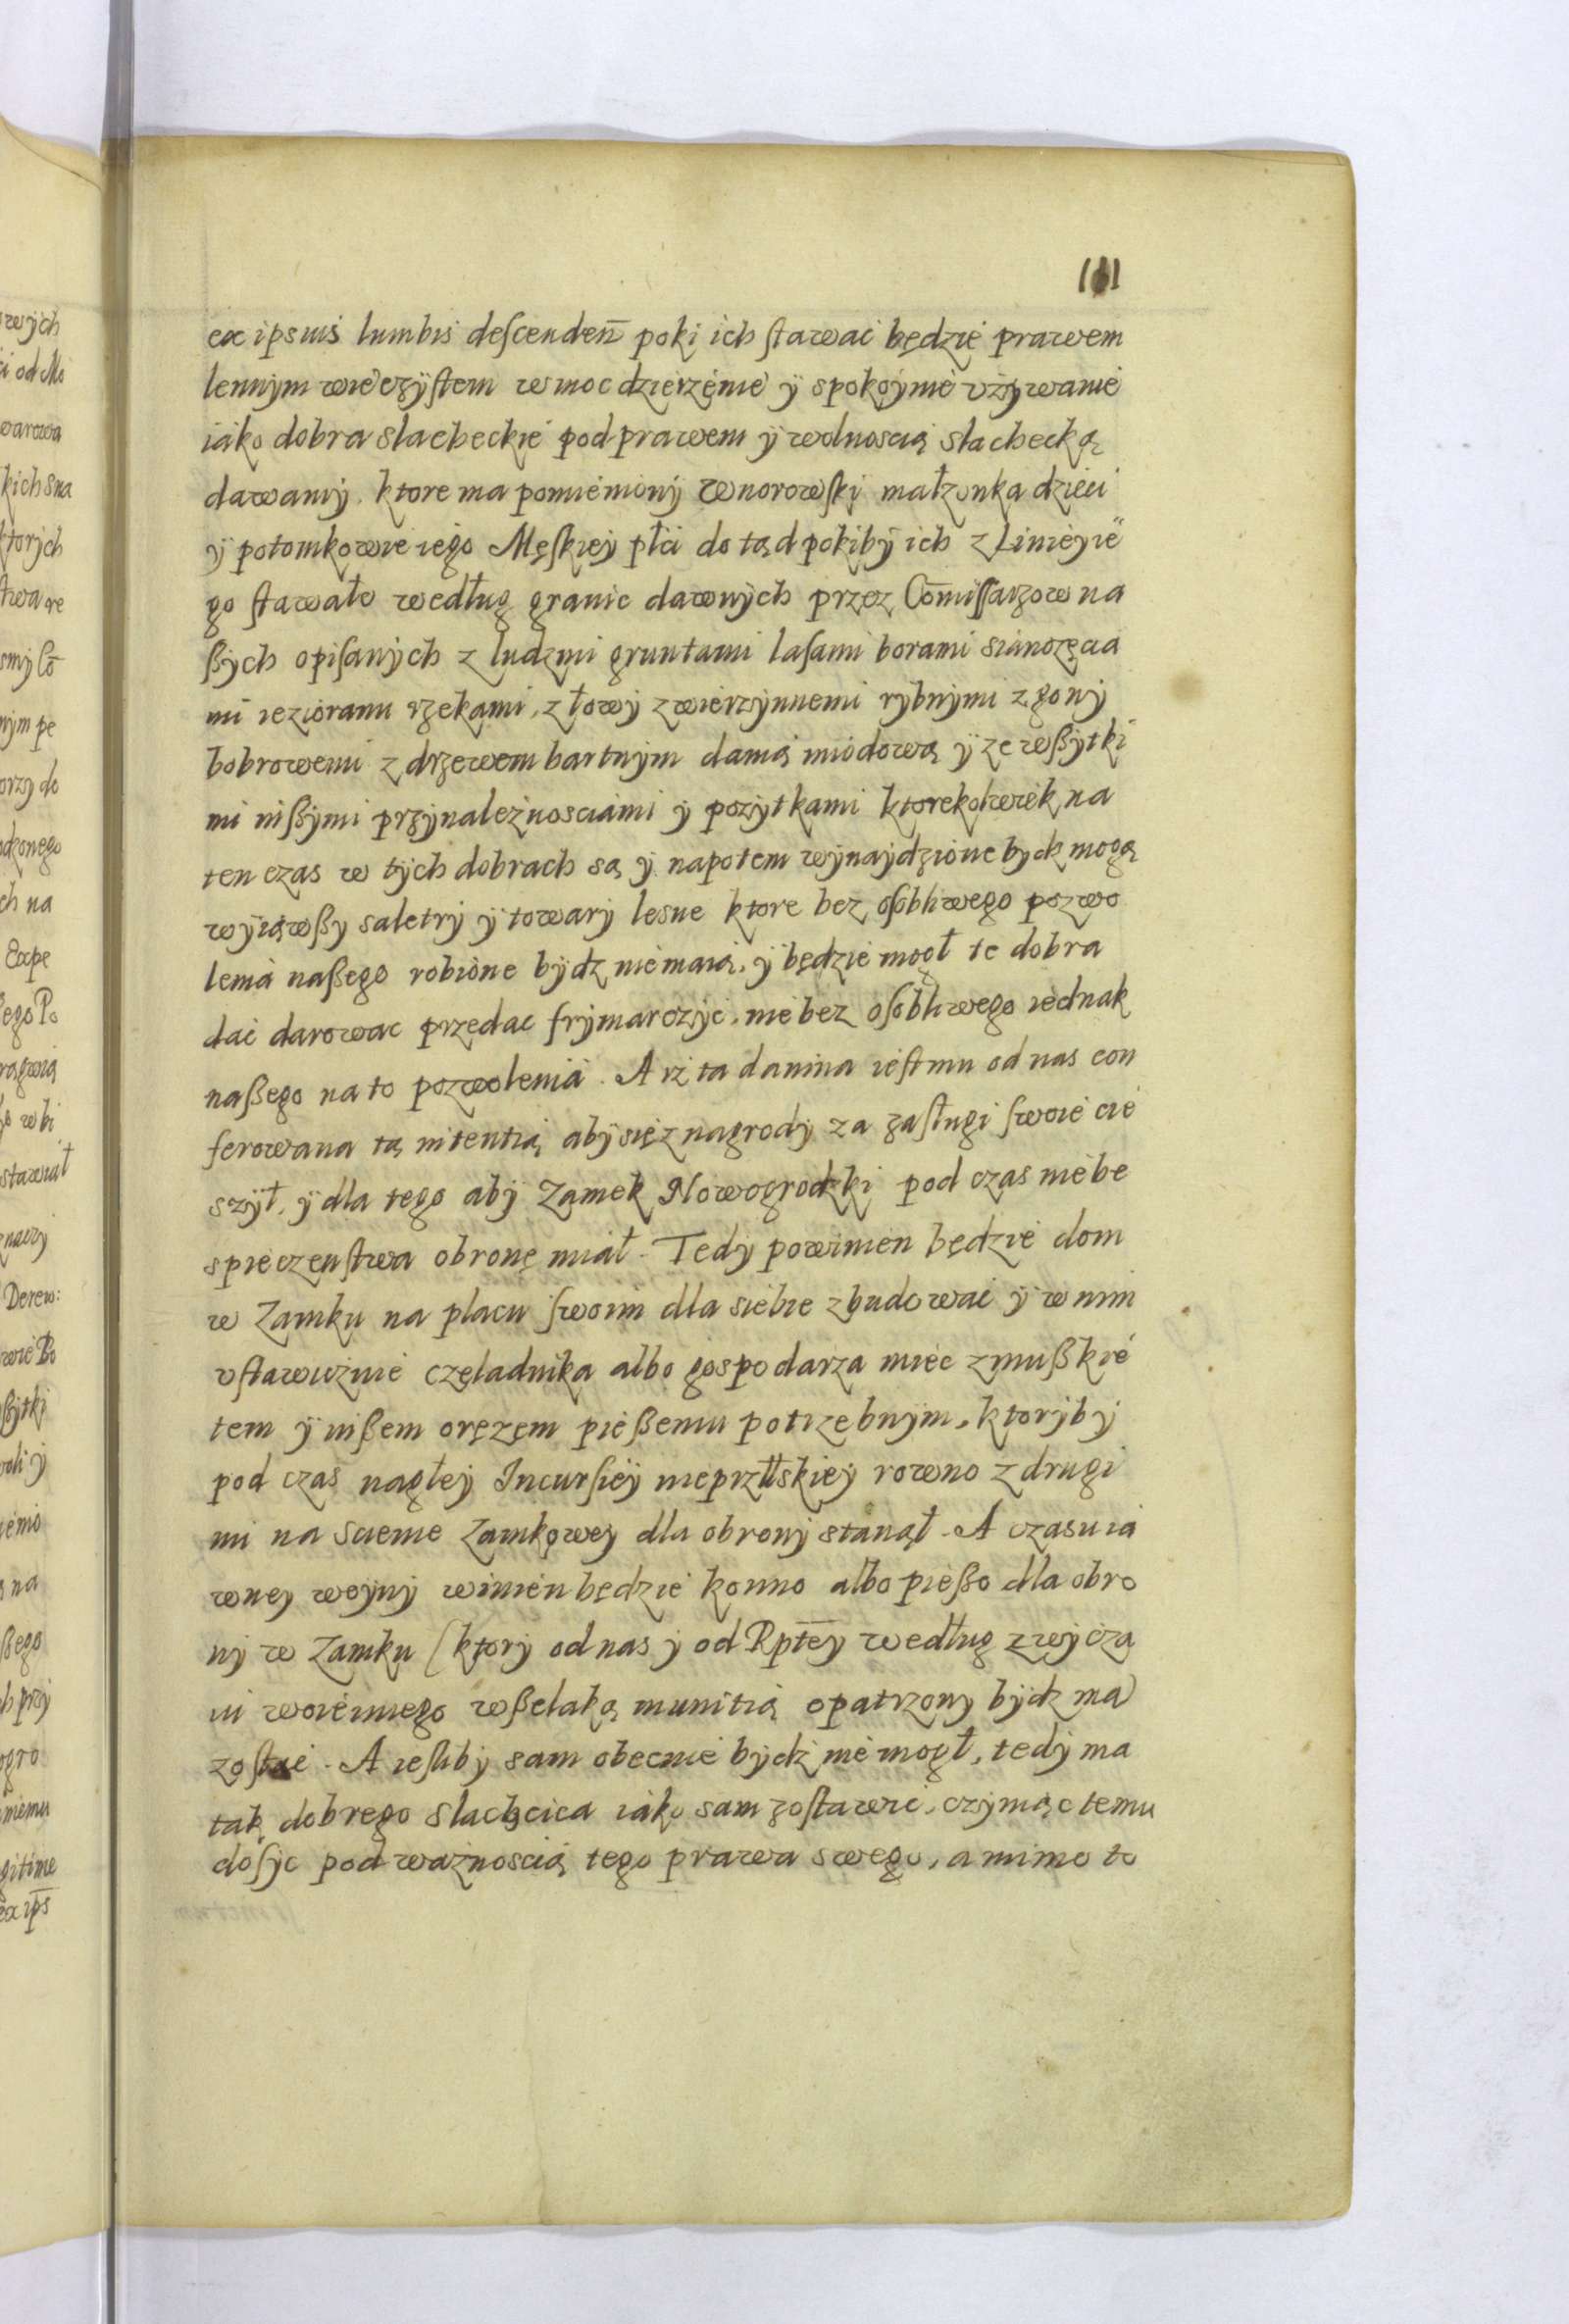 111
ex ipsius lumbis descenden̄ poki ich stawać będzie prawem
lennym wieczÿstem w moc dzierżęnie ÿ spokoýnie vżywanie
iako dobra slacheckie pod prawem ÿ wolnoscią slachecką
dawamÿ. ktore ma pomieniony Wnorowski małzonka dzieci
ÿ potomkowie iego Męskieÿ płci do tąd pokibÿ ich z Linieÿ ie
go stawało według granic dawnÿch przez Com̄issarzow na
ßÿch opisanÿch z ludzmi gruntami lasami borami sianozęcia
mi iezioramu rzekami, z łowÿ zwierzÿnnemi rÿbnÿmi z gonÿ
bobrowemi z drzewem bartnÿm danią miodową ÿ ze wßÿtki
mi inßÿmi przÿnależnosciami ÿ pozÿtkami ktorekolwiek na
ten czas w tÿch dobrach są ÿ napotem wÿnaÿdzione bydz mogą
wÿiąwßy saletrÿ ÿ towarÿ lesne ktore bez osobliwego pozwo
lenia naßego robione bÿdz nie maią, ÿ będzie mogł te dobra
dać darowac przedac frÿmarczÿć, nie bez osobliwego iednak
naßego na to pozwolenia. A iż ta danina iest mu od nas con
ferowana tą intentią abÿ się z nagrodÿ za zasługi swoie cie
szÿł, ÿ dla tego abÿ Zamek Nowogrodzki pod czas niebe
spieczenstwa obronę miał. Tedÿ powinien będzie dom
w Zamku na placu swoim dla siebie zbudować ÿ w nim
vstawicżnie czeladnika albo gospodarza miec z mußkie
tem ÿ inßem orężęm pießemu potrzebnÿm, ktorÿbÿ
pod czas nagłeÿ Incursieÿ nieprzłłskieÿ rowno z drugi
mi na scienie Zamkoweÿ dla obronÿ stanął. A czasu ia
wneÿ woÿnÿ winien będzie konno albo pießo dla obro
nÿ w Zamku (ktorÿ od nas ÿ od Rptey według zwÿcza
iu woiennego wßelaką munitią opatrzony bÿdz ma)
zostac. A iesliby sam obecnie bÿdź nie mogł, tedÿ ma
tak dobrego slachcica iako sam zostawić, czÿniąc temu
dosÿc pod ważnoscią tego prawa swego, a mimo to